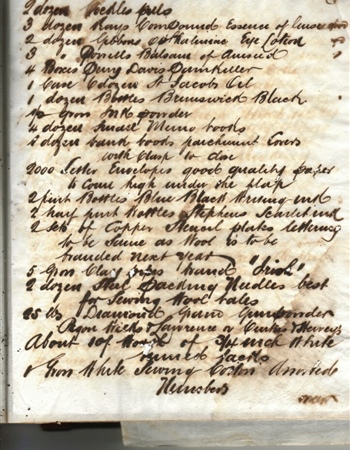 2 dozen Beechas pills
3 dozen Kays Compound Essence of Linseed
2 dozen Gibbons Opthalmine Eye Lotion
3 " Powells Balsam of Aniseed
4 Boxes Perry Davis Painkiller
1 Case 6 dozen St Jacobs Oil
1 dozen Bottles Brunswick Black
Gross Ink powder
4 dozen Small Memo books
dozen bank books parchment covers
with Clasp to close
2000 Letter Envelopes good quality paper
to come high under the flap
2 pint Bottles Blue Black Writing ink
2 half pint Bottles Stephens Scarlet ink
2 sets of Copper Stencil plates lettering
to be same as Wool is to be
branded next year
5 Gross Clay pipes brand "Irish"
2 dozen Steel Packing Needles best
for Sewing Wool bales
25 lbs Diamond Grain Gunpowder
Pigou Wilks & Lawrence or Curtis & Harveys
About worth of 3/4 inch White
tacks
Gross White Sewing Cotton Assorted
Numbers